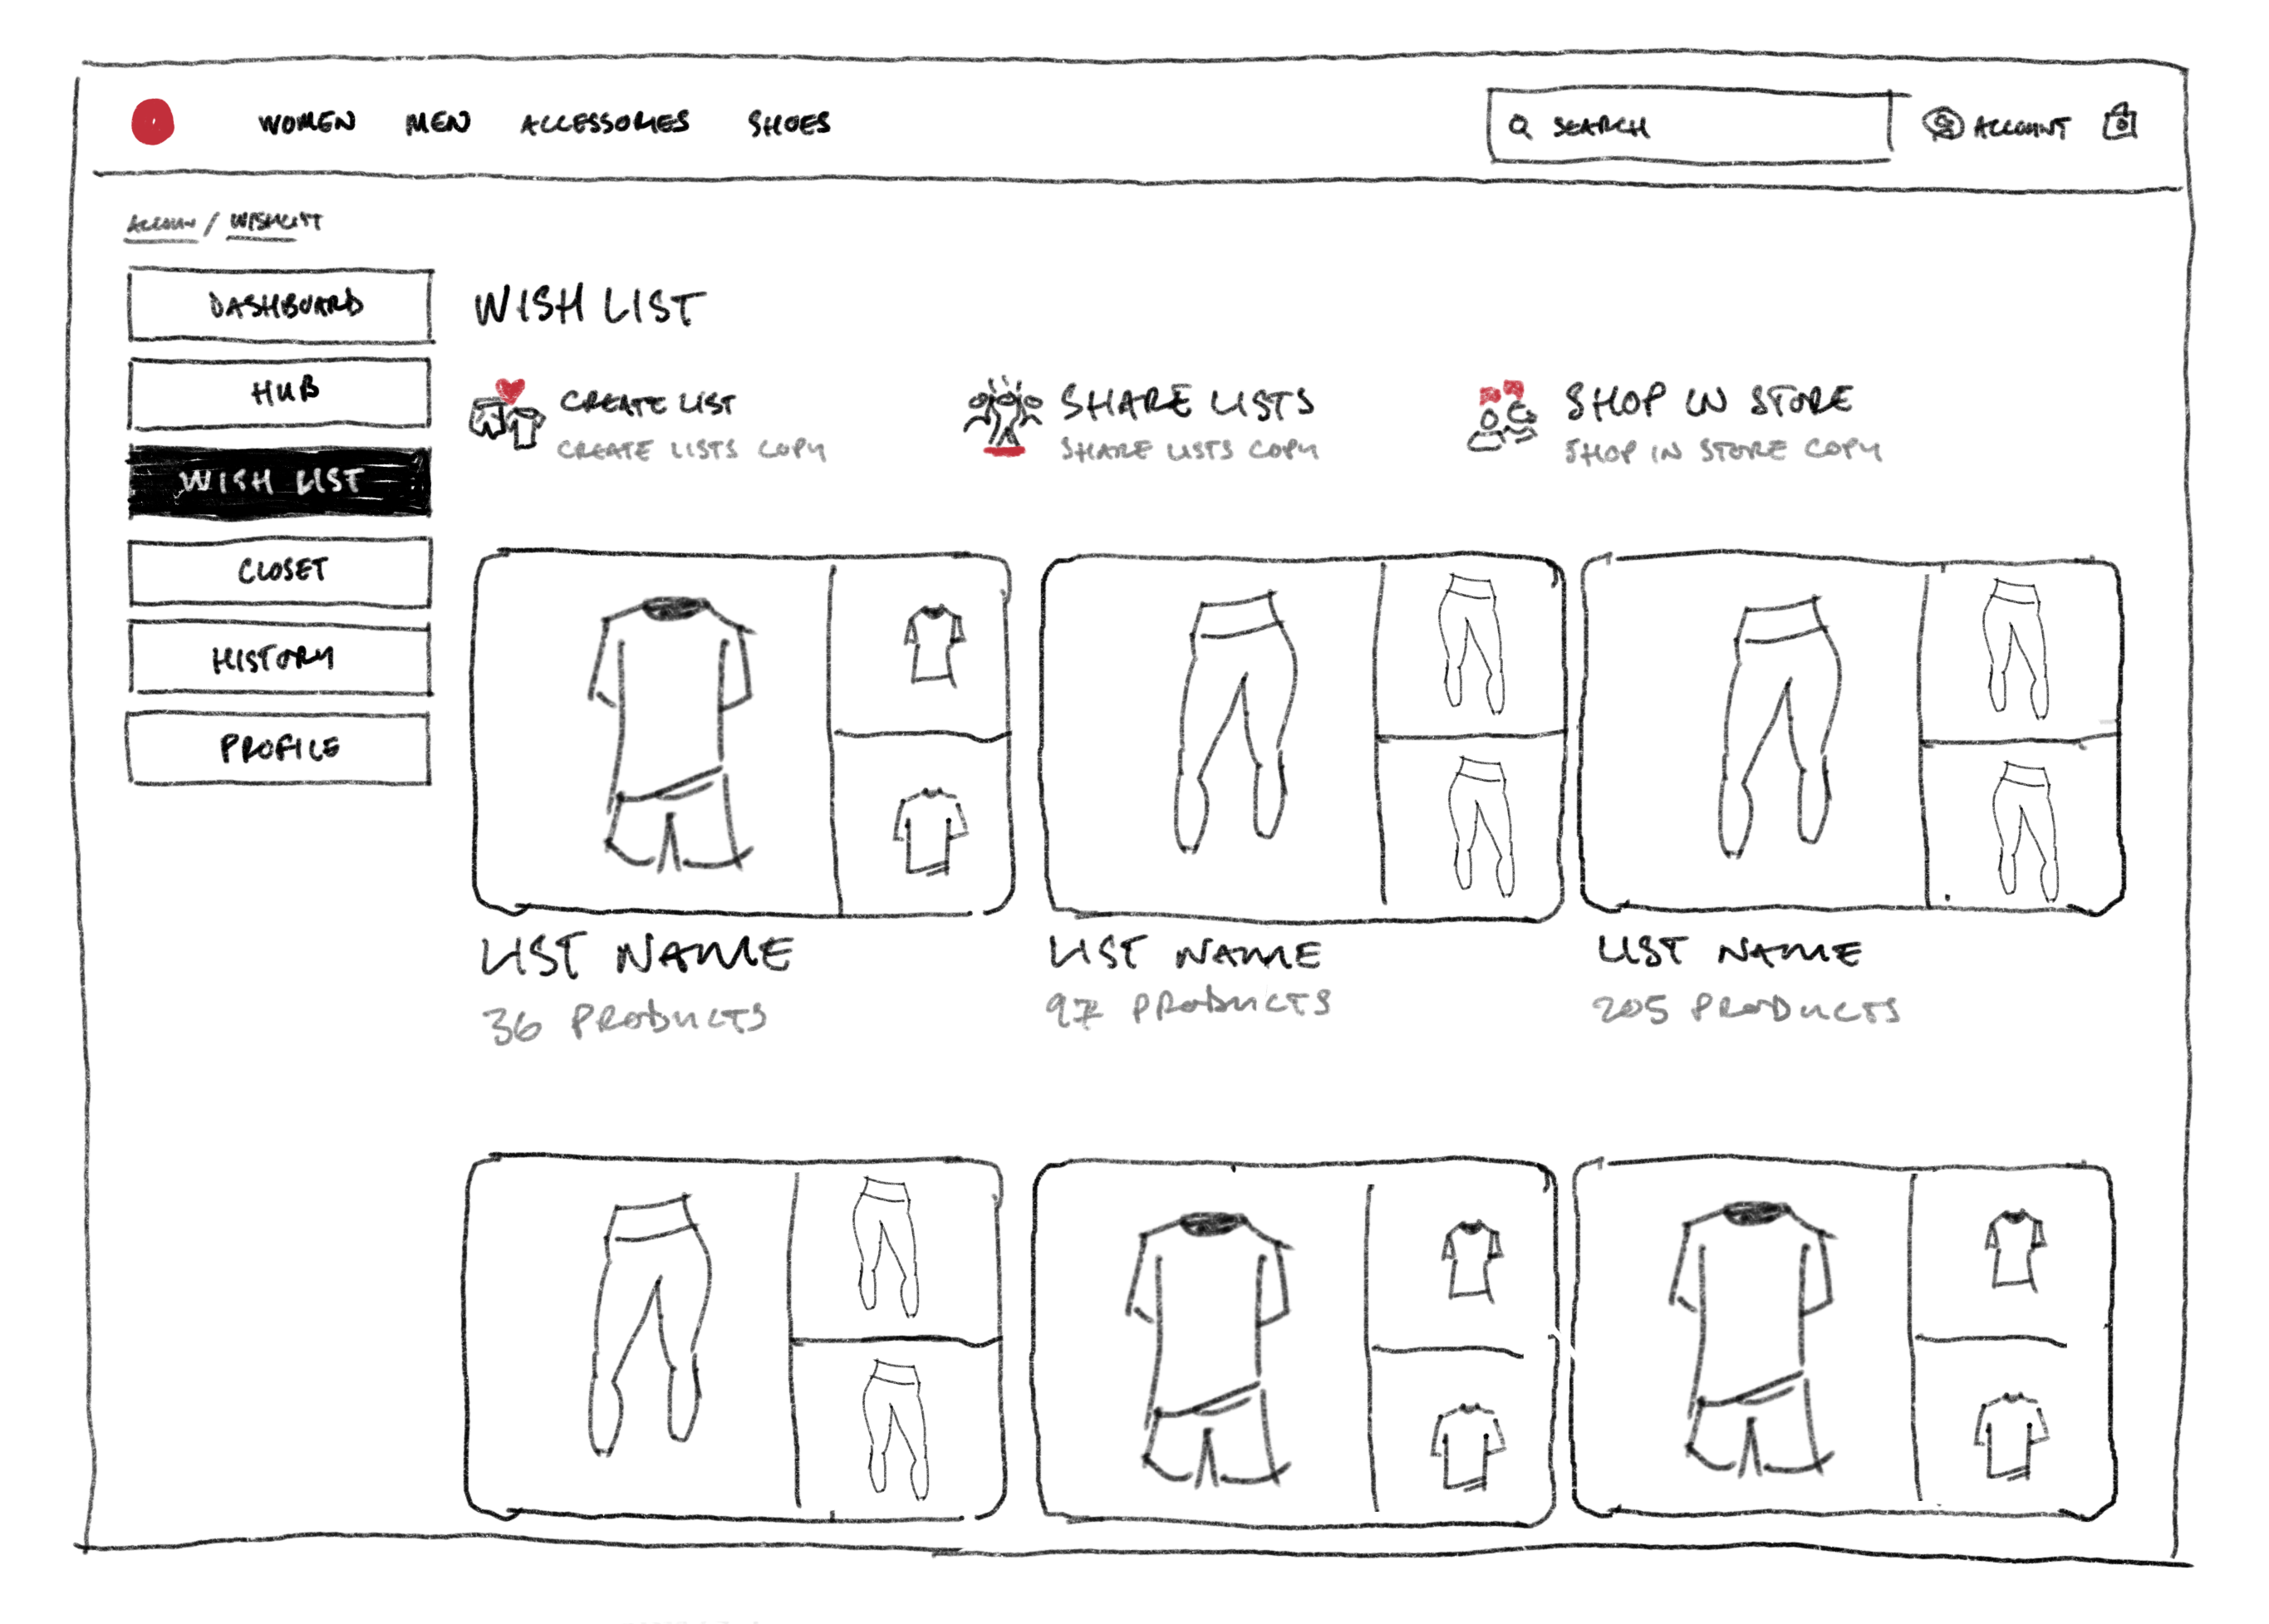 WOMEN MEN ACCESSORIES SHOES SEARCH ACCOUNT
ACCOUN / WISHLIST
DASHBOARD
HUB
WISH LIST
CLOSET
HISTORY
PROFILE
WISH LIST
CREATE LIST
CREATE LISTS COPY
SHARE LISTS
SHARE LISTS COPY
SHOP IN STORE
SHOP IN STORE COPY
LIST NAME
36 PRODUCTS
LIST NAME
97 PRODUCTS
LIST NAME
205 PRODUCTS